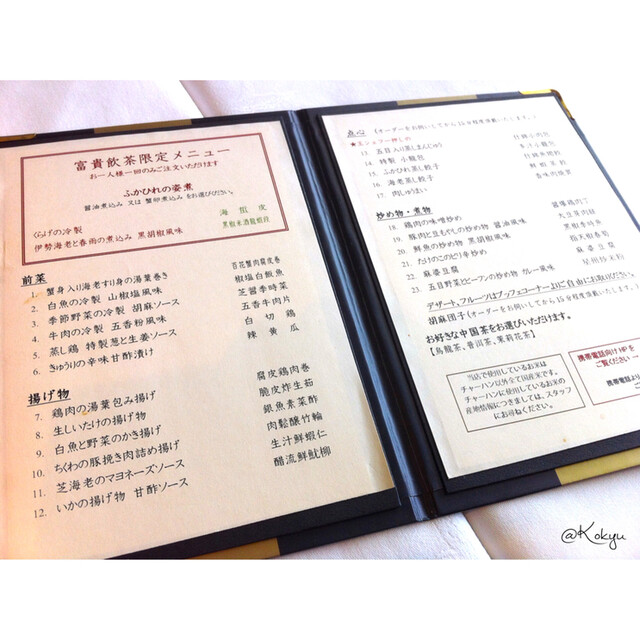 富貴飲茶限定メニュー
お一人様一回のみご注文いただけます
ふかひれの姿煮
醤油煮込み 又は 蟹卵煮込み をお選びください。
くらげの冷製 海蜇皮
伊勢海老と春雨の煮込み 黒胡椒風味
前菜
1. 蟹身入り海老すり身の湯葉巻き 百花蟹肉腐皮巻
2. 白魚の冷製 山椒塩風味 椒塩白飯魚
3. 季節野菜の冷製 胡麻ソース 芝醤季時菜
4. 牛肉の冷製 五香粉風味 五香牛肉片
5. 蒸し鶏 特製葱と生姜ソース 白切鶏
6. きゅうりの辛味甘酢漬け 辣黄瓜
揚げ物
7. 鶏肉の湯葉包み揚げ 腐皮鶏肉巻
8. 生しいたけの揚げ物 脆皮炸生茹
9. 白魚と野菜のかき揚げ 銀魚素菜酥
10. ちくわの豚挽き肉詰め揚げ 肉鬆釀竹輪
11. 芝海老のマヨネーズソース 生汁鮮蝦仁
12. いかの揚げ物 甘酢ソース 醋流鮮魷柳
点心 (オーダーをお伺いしてから15分程度頂戴いたします。)
★エシェフ一押しの
13. 五目入り蒸しまんじゅう
14. 特製 小籠包
15. ふかひれ蒸し餃子
16. 海老蒸し餃子
17. 肉しゅうまい
炒め物・煮物
18. 鶏肉の味噌炒め 醤爆鶏肉丁
19. 豚肉と豆もやしの炒め物 醤油風味 大豆芽肉絲
20. 鮮魚の炒め物 黒胡椒風味
21. だけのこのピリ辛炒め 指天椒春筍
22. 麻婆豆腐 麻婆豆腐
23. 五目野菜とビーフンの炒め物 カレー風味 星州炒米粉
デザート、フルーツはブッフェコーナーよりご自由にお取りください。
胡麻団子(オーダーをお伺いしてから15分程度頂戴いたします。)
お好きな中国茶をお選びいただけます。
【烏龍茶、普洱茶、茉莉花茶】
当店で使用しているお米は
チャーハン以外全て国産米です。
チャーハンに使用しているお米の
産地情報につきましては、スタッフ
にお尋ねください。
携帯電話向けHPを
ご覧ください
携帯電話より
@Kokyu